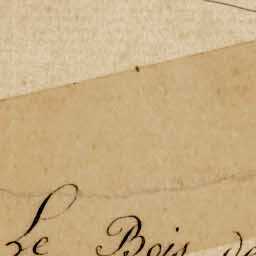 Le Bois de